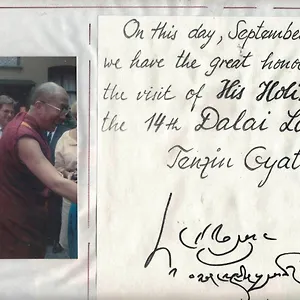 On this day, September
we have the great honou
the visit of His Holi
the 14th Dalai L
Tenzin Gyat